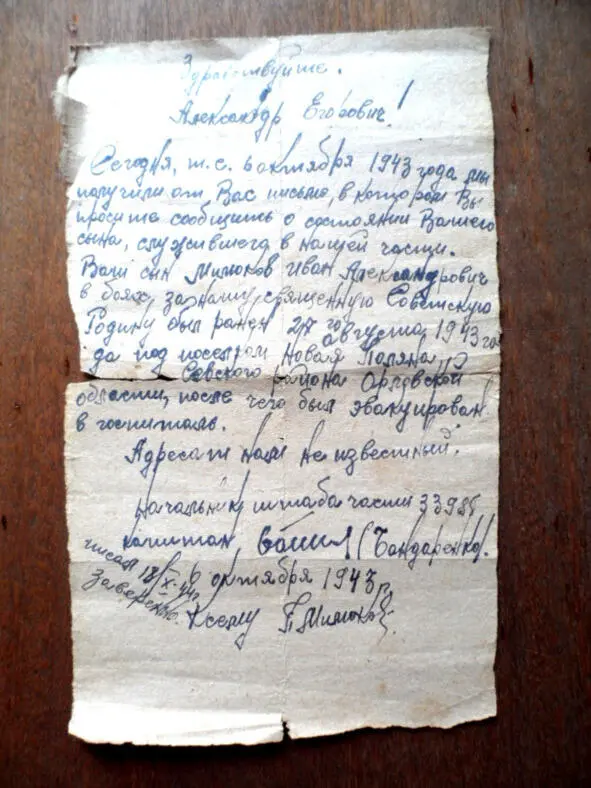 Здравствуйте.
Александр Егорович!
Сегодня, т.е. 6 октября 1943 года мы
получили от Вас письмо, в котором Вы
просите сообщить о состоянии Вашего
сына, служившего в нашей части.
Ваш сын Милюков Иван Александрович
в боях, за нашу священную Советскую
Родину был ранен 27го августа 1943 го-
да под поселком Новая Поляна
Севского района Орловской
области, после чего был эвакуирован
в госпиталь.
Адресат нам не известный.
Начальник штаба части 33985
капитан (Бандаренко).
6 октября 1943 г.
писал 18/X-44г.
заверено.
К сему П. Милюков